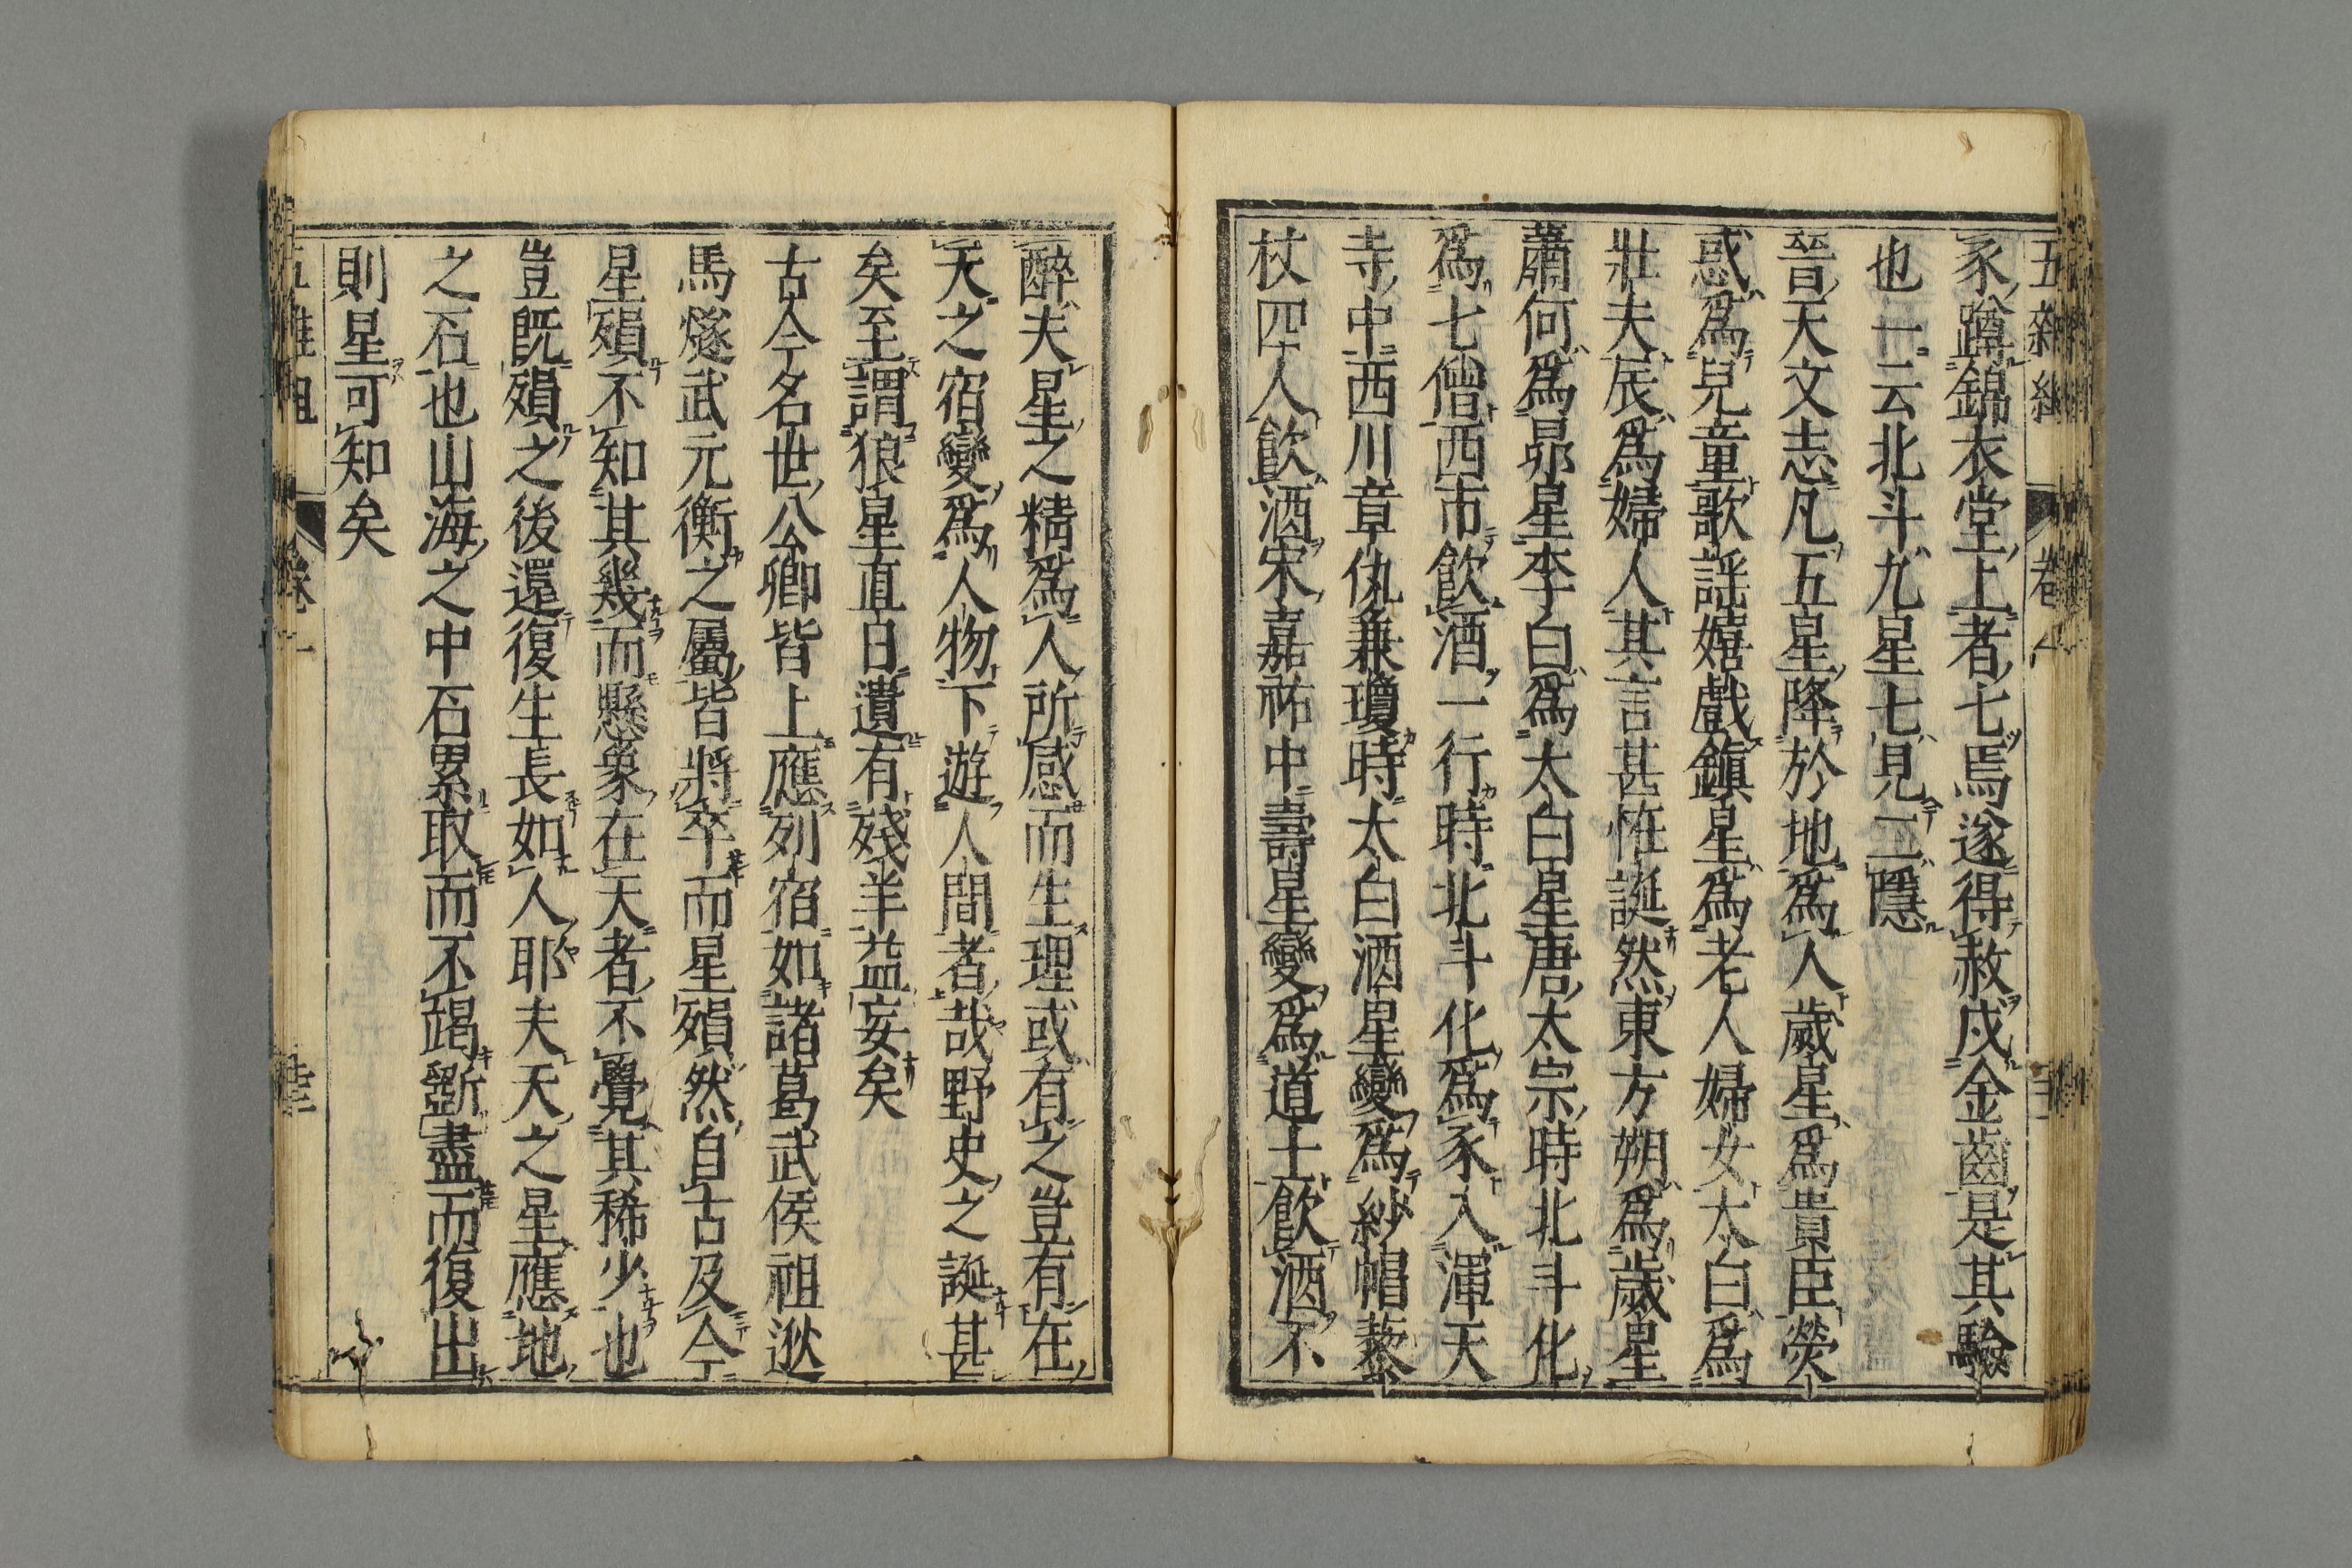 五雜組 卷一
豕蹲錦衣堂上者七焉遂得赦戍金齒是其驗
也一云北斗九星七見二隱
晉天文志凡五星降於地爲人歲星爲貴臣熒
惑爲兒童歌謡嬉戲鎭星爲老人婦女太白爲
壯夫辰爲婦人其言甚恠誕然東方朔爲歲星
蕭何爲昴星李白爲太白星唐太宗時北斗化
爲七僧西市飲酒一行時北斗化爲豕入渾天
寺中西川章仇兼瓊時太白酒星變爲紗帽藜
杖四人飲酒宋嘉祐中壽星變爲道士飲酒不
醉夫星之精爲人所感而生理或有之豈有在
天之宿變爲人物下遊人間者哉野史之誕甚
矣至謂狼星直日遺有殘羊益妄矣
古今名世公卿皆上應列宿如諸葛武侯祖逖
馬燧武元衡之屬皆將卒而星殞然自古及今
星殞不知其幾而懸象在天者不覺其稀少也
豈既殞之後還復生長如人耶夫天之星應地
之石也山海之中石累取而不竭斵盡而復出
則星可知矣
五雜組 卷一